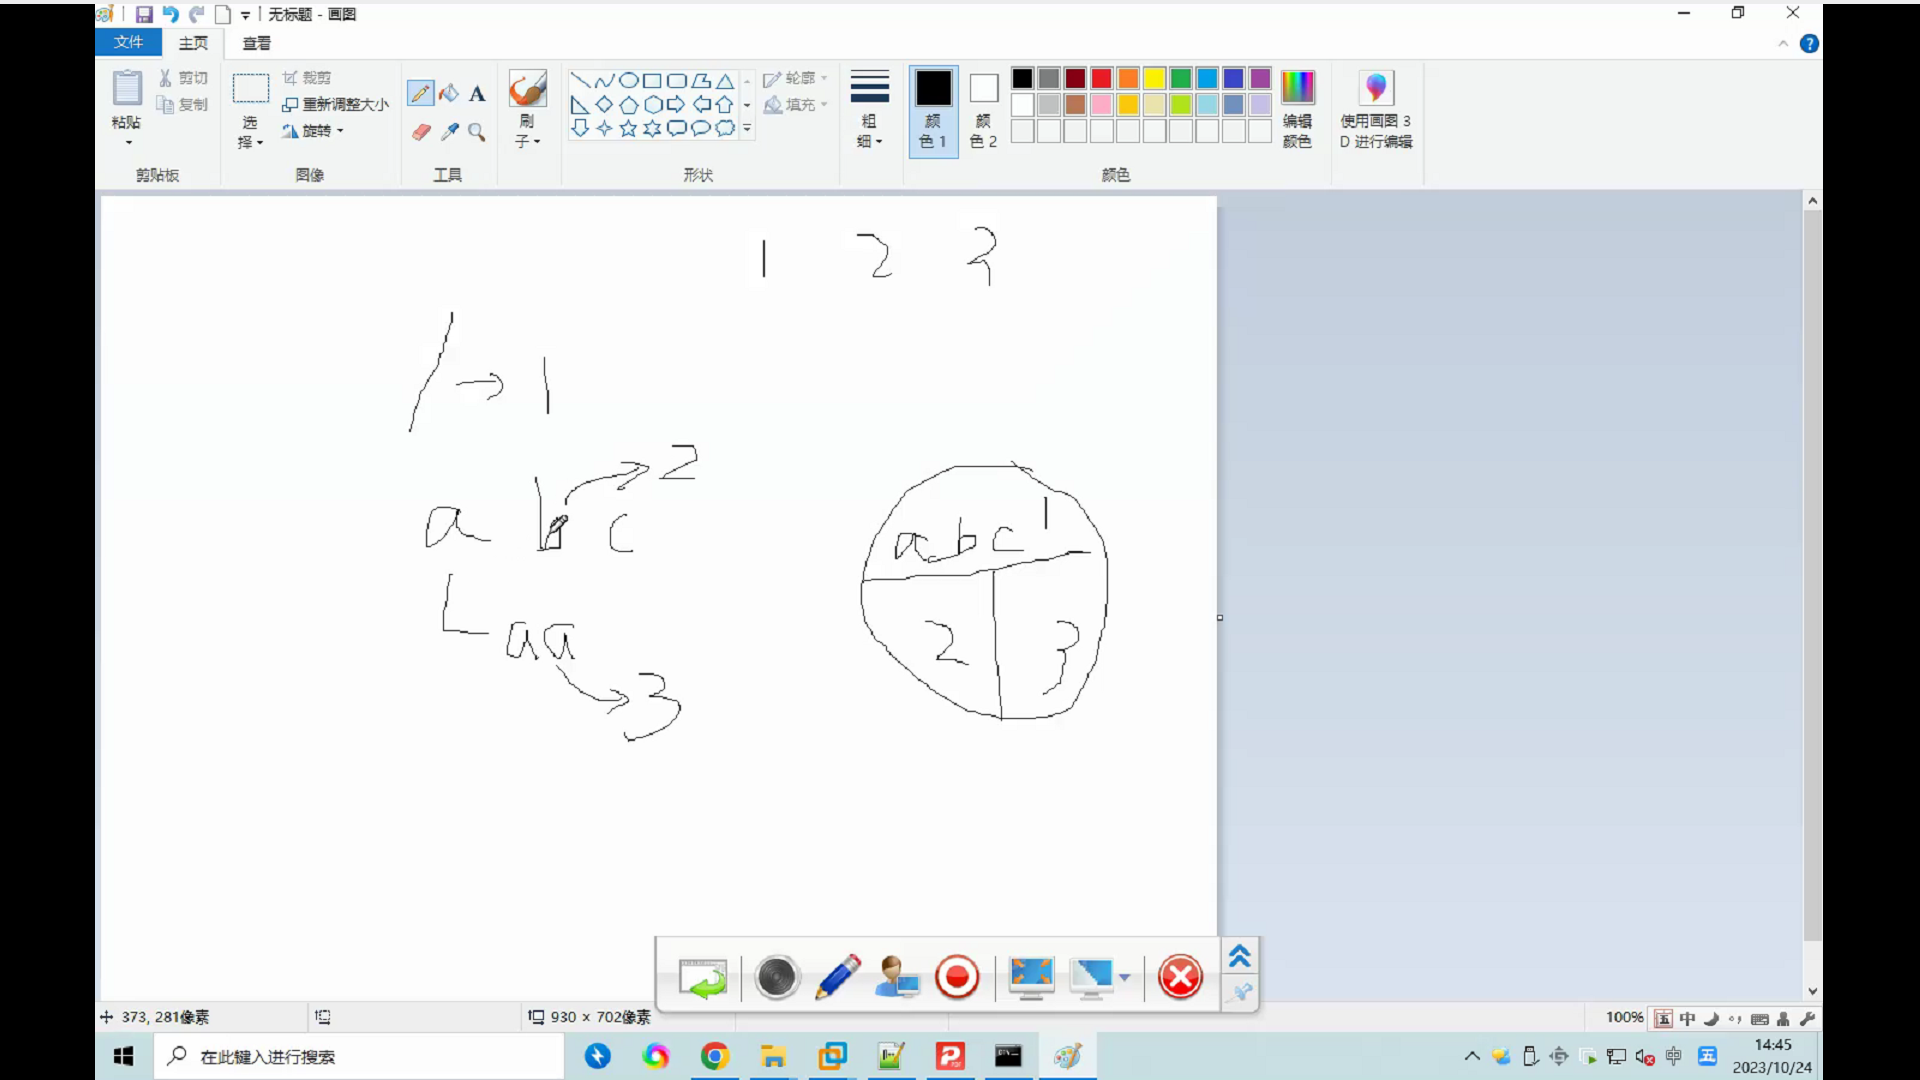 无标题 - 画图
文件 主页 查看
粘贴 剪切 复制
剪贴板
选择 裁剪 重新调整大小 旋转
图像
A
工具
刷子
轮廓 填充
形状
粗细
颜色 1 颜色 2
编辑颜色
颜色
使用画图 3D 进行编辑
1 2 3
/ → 1
a b c → 2
aa → 3
abc 1
2 3
373, 281像素
930 × 702像素
100%
五 中
在此键入进行搜索
中 五
14:45
2023/10/24